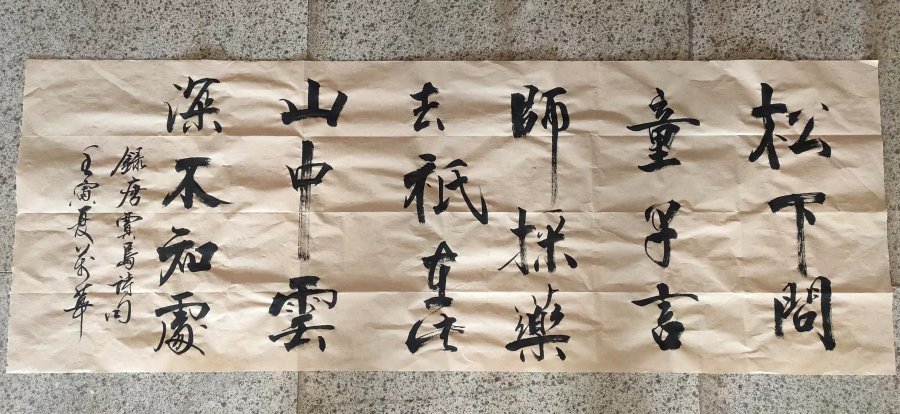 松下問
童子言
師採藥
去祇在此
山中雲
深不知處
錄唐賈島詩句
壬寅夏万華